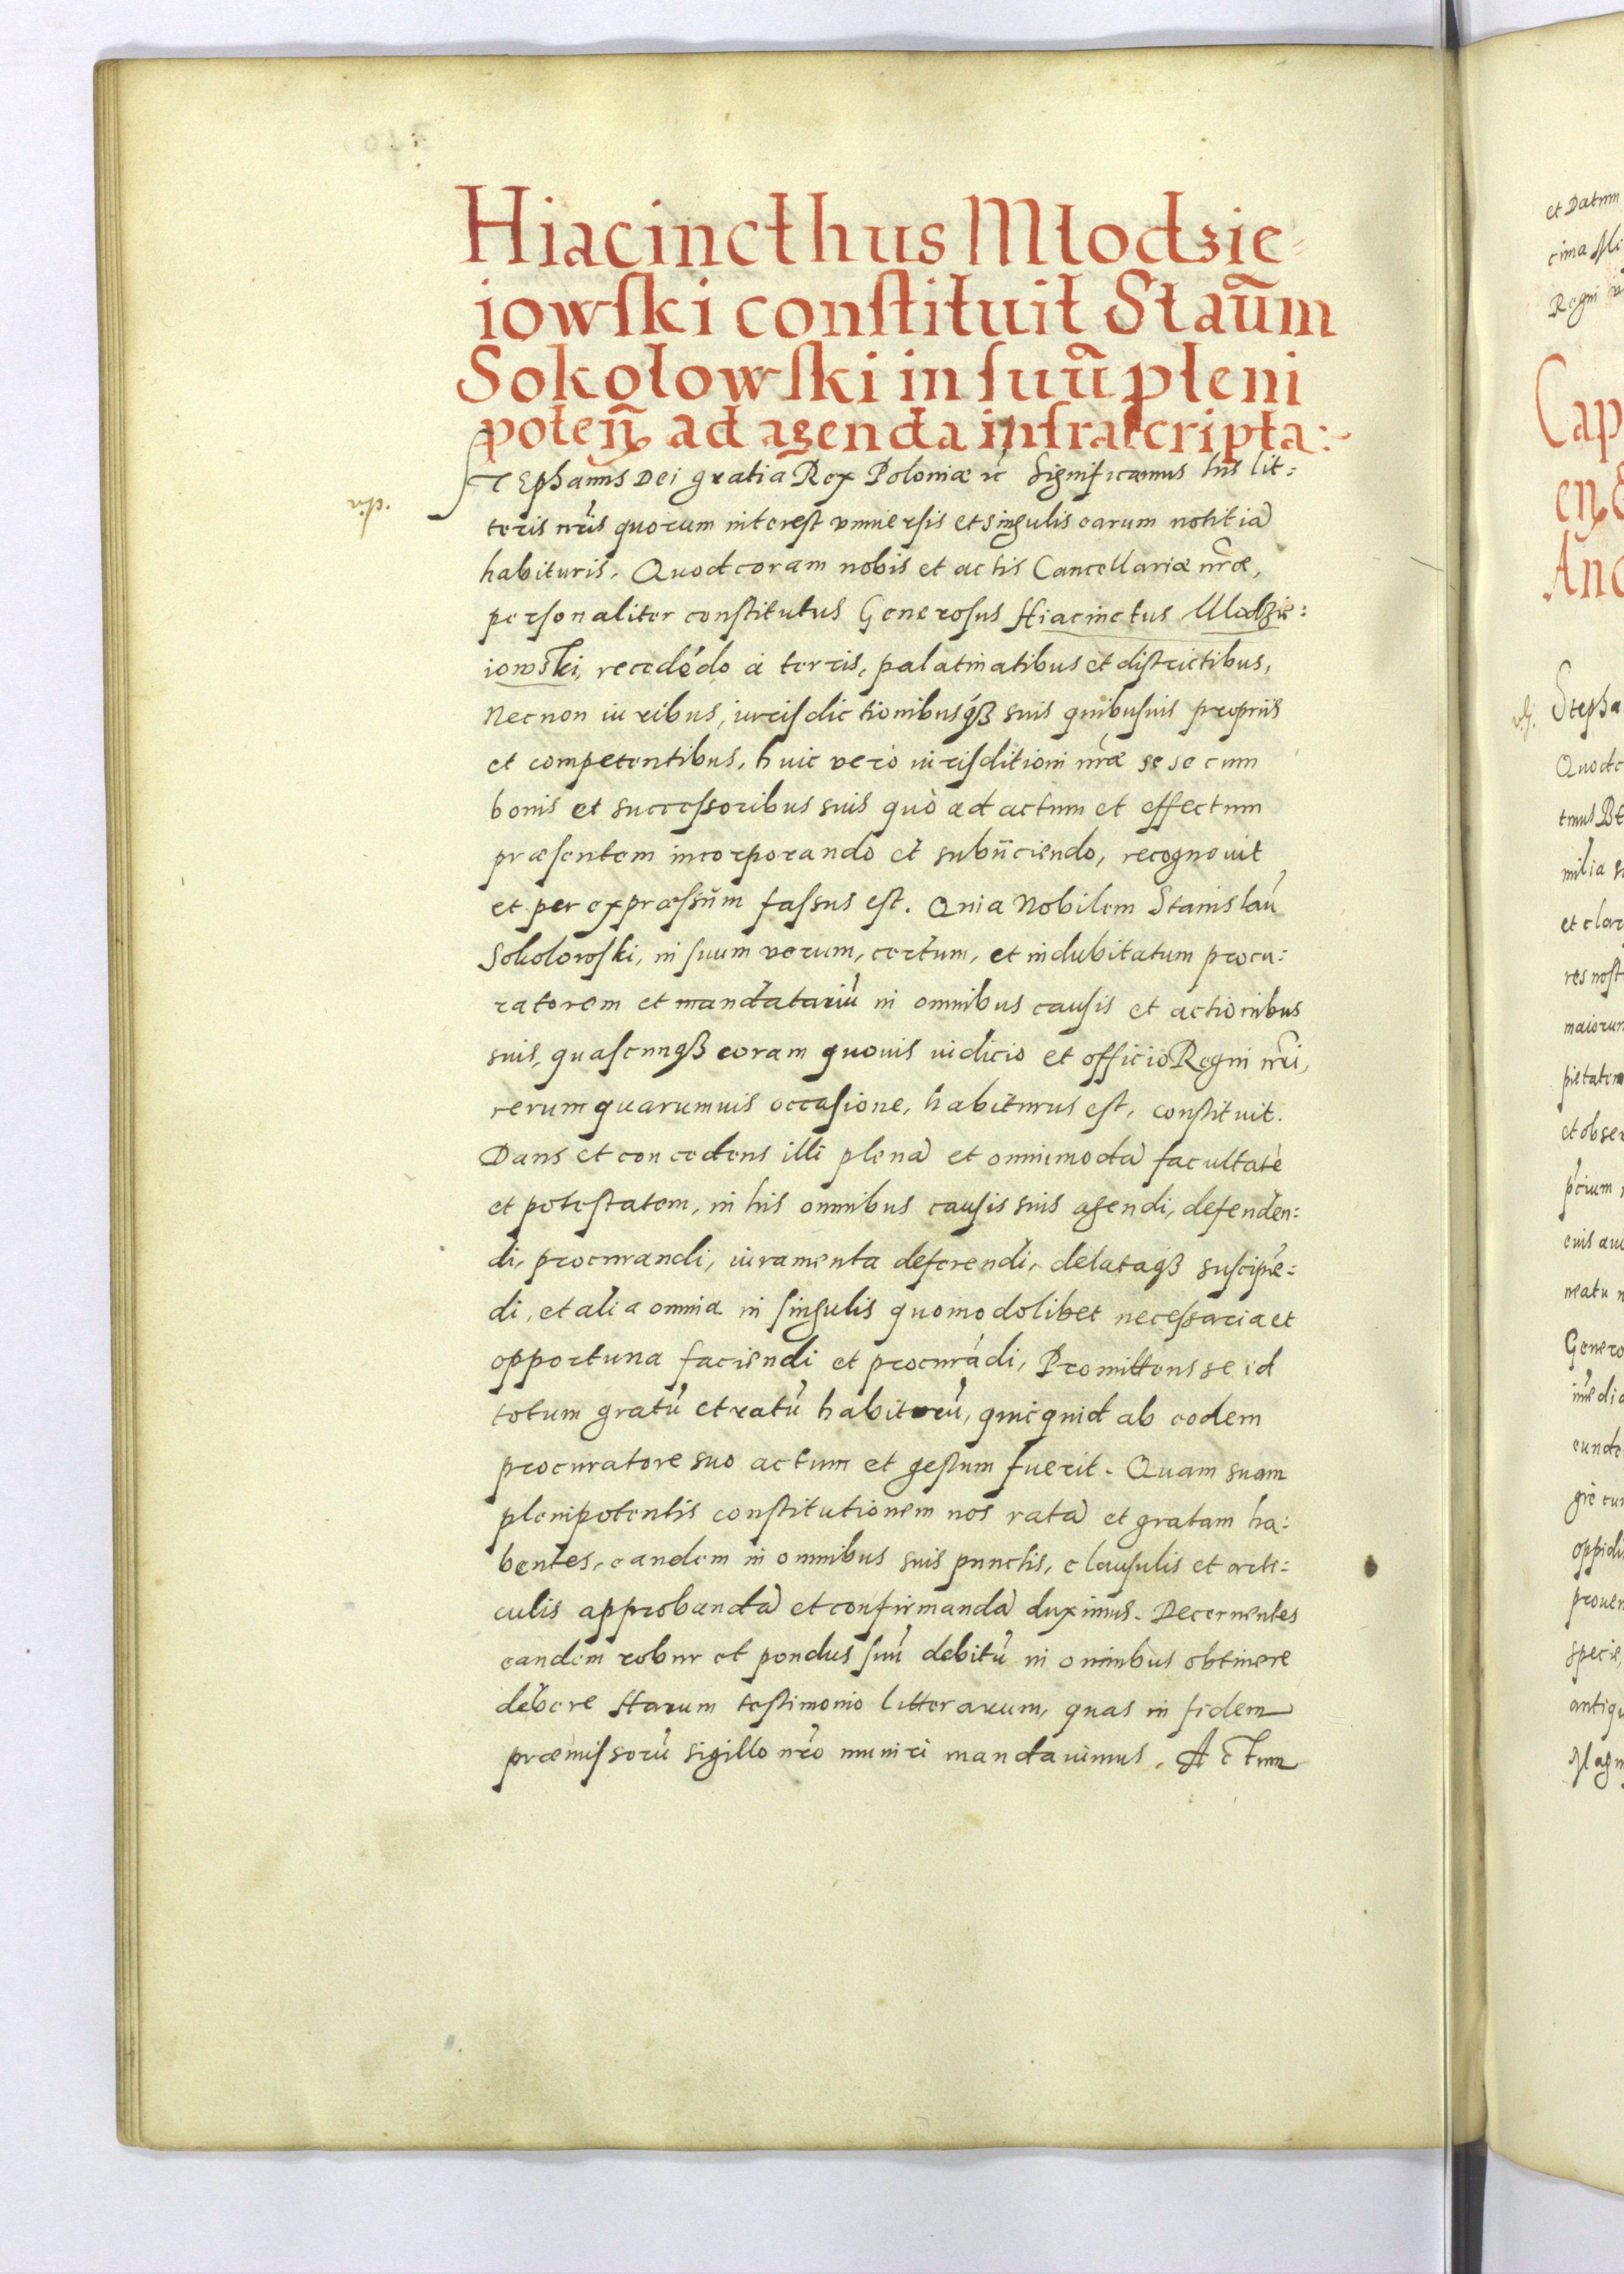 Hiacincthus Młodzie-
iowſki conſtituit Staũm
Sokołowſki in ſuũ pleni
poteñ ad agenda infraſcripta:
STEphanus Dei gratia Rex Poloniæ ꝛc̃ Significamus his lit:
teris nr̃is quorum interest vniuersis et singulis earum notitiã
habituris. Quod coram nobis et actis Cancellariæ nr̃æ,
personaliter conſtitutus Generoſus Hiacinctus Mlodzie:
iowski, recedẽdo à terris, palatinatibus et diſtrictibus,
Necnon iuribus, iurisdictionibusqꝫ suis quibuſuis proprijs
et competentibus, huic verò iurisditioni nr̃æ se se cum
bonis et successoribus suis quò ad actum et effectum
præsentem incorporando et subijciendo, recognouit
et per expræſsum faſsus eſt. Quia Nobilem Stanislaũ
Sokolowſki, in ſuum verum, certum, et indubitatum procu:
ratorem et mandatariũ in omnibus cauſis et actionibus
suis, quaſcunqꝫ coram quouis iudicio et officio Regni nr̃i,
rerum quarumuis occasione, habiturus eſt, conſtituit.
Dans et concedens illi plenã et omnimodã facultatẽ
et poteſtatem, in his omnibus cauſis suis agendi, defenden:
di, procurandi, iuramenta deferendi, delataqꝫ suſcipiẽ:
di, et alia omnia in ſingulis quomodolibet neceſsaria et
opportuna faciendi et procurãdi, Promittens se id
totum gratũ et ratũ habiturũ, quicquid ab eodem
procuratore suo actum et geſtum fuerit. Quam suam
plenipotentis conſtitutionem nos ratã et gratam ha:
bentes, eandem in omnibus suis punctis, clauſulis et arti:
culis approbandã et confirmandã duximus. Decernentes
eandem robur et pondus ſuũ debitũ in omnibus obtinere
debere Harum testimonio litterarum, quas in fidem
præmiſsorũ sigillo nr̃o muniri mandauimus. Actum
et Datum
cima
Regni
Cap
Stepha
Quod c
milia
et clar
res noſt
maiorum
pietatem
et obser
Genero
oppidi
prouen
specie,
antiqu
Magn